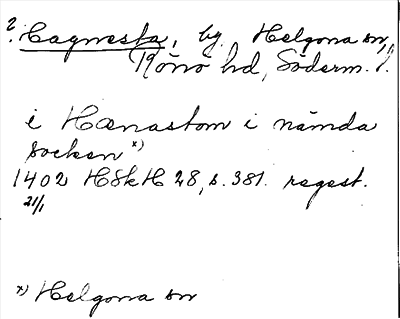 ? Hagnesta, by, Helgona sn,
Rönö hd, Söderm. l.
i Hænastom i nämda
socken x)
1402 HSkH 28, s. 381. regest.
21/1
x) Helgona sn